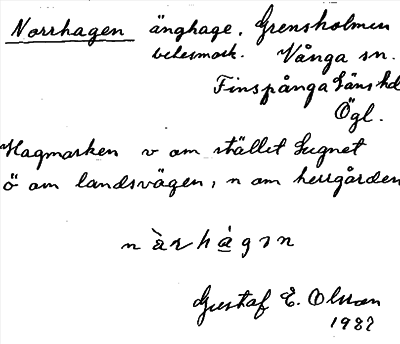 Norrhagen änghage, Grensholmen
betesmark. Vånga sn.
Finspånga läns hd
Ögl.
Hagmarken v om stället Lugnet
ö om landsvägen, n om herrgården
n à r h á g ı n
Gustaf E. Olsson
1982